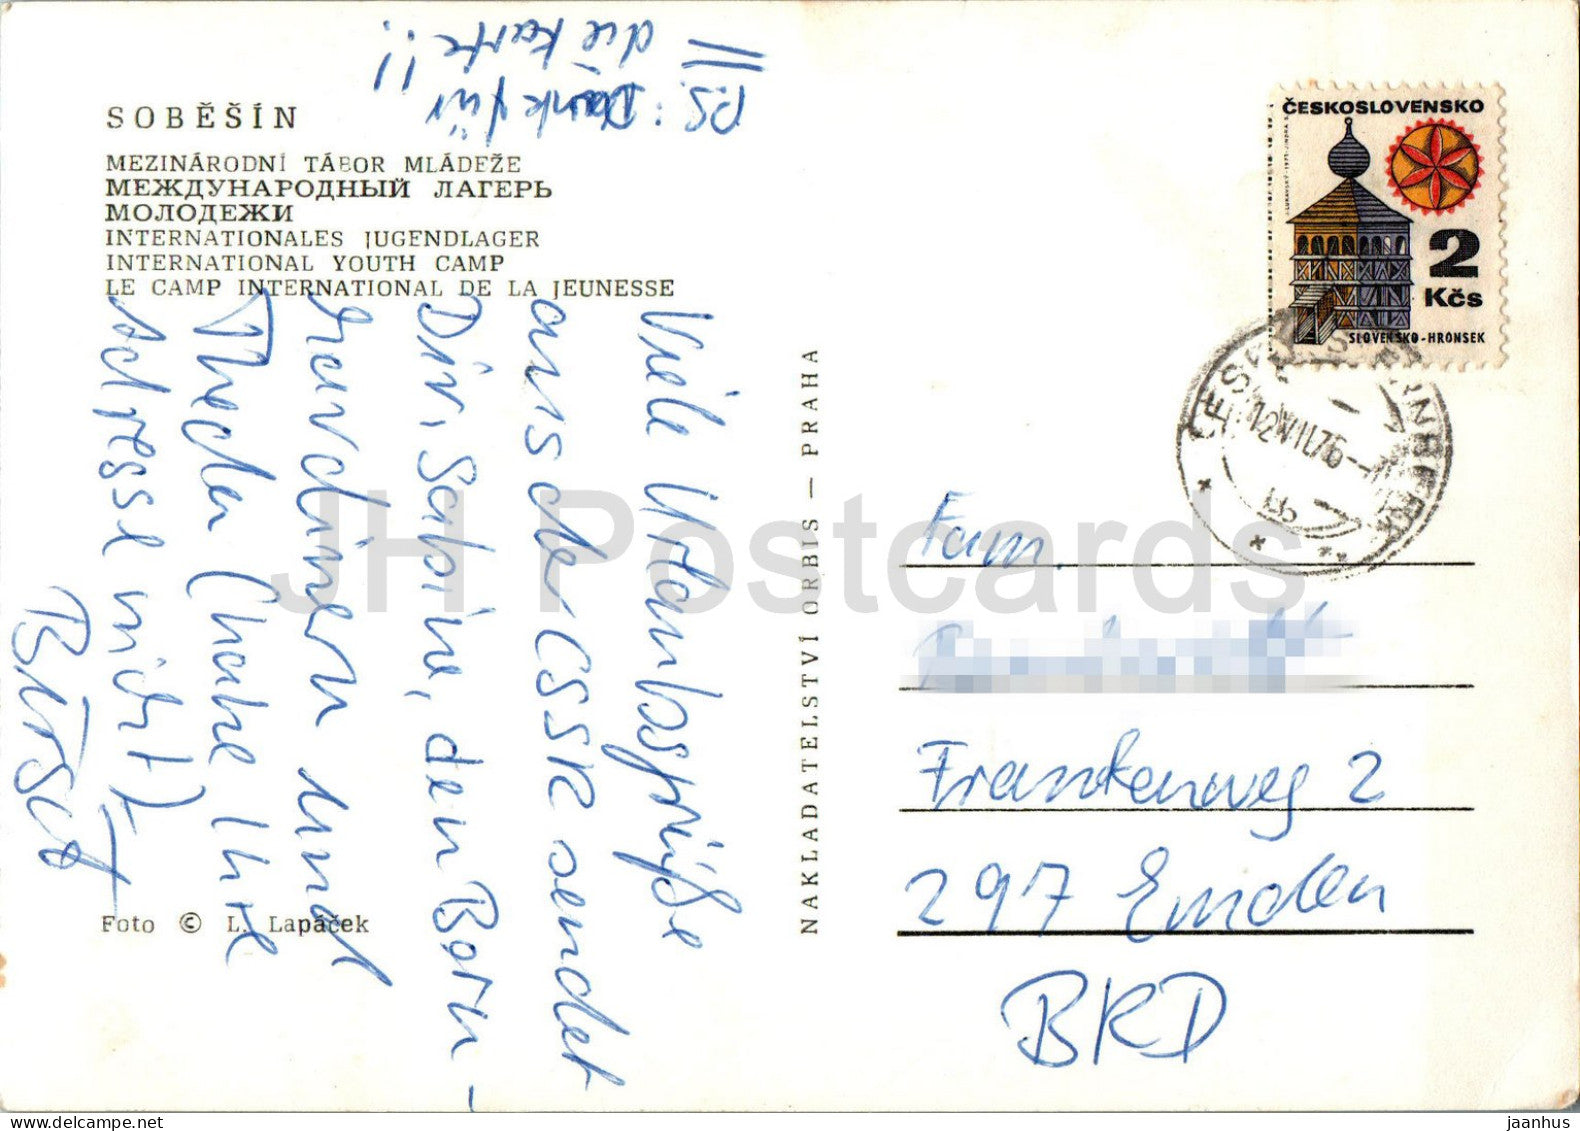 SOBĚŠÍN
MEZINÁRODNÍ TÁBOR MLÁDEŽE
МЕЖДУНАРОДНЫЙ ЛАГЕРЬ
МОЛОДЕЖИ
INTERNATIONALES JUGENDLAGER
INTERNATIONAL YOUTH CAMP
LE CAMP INTERNATIONAL DE LA JEUNESSE
Viele Urlaubsgrüße
aus der CSSR sendet
Dir, Sabine, den Born-
und
Thecla (habe ihre
Adresse nicht)
P.S: Dank für
die Karte!!
Foto © L. Lapáček
NAKLADATELSTVÍ ORBIS — PRAHA
ČESKOSLOVENSKO
2
Kčs
SLOVENSKO-HRONSEK
12.VII.76
Fam.
Frankenweg 2
297 Emden
BRD
JH Postcards
www.delcampe.net
jaanhus